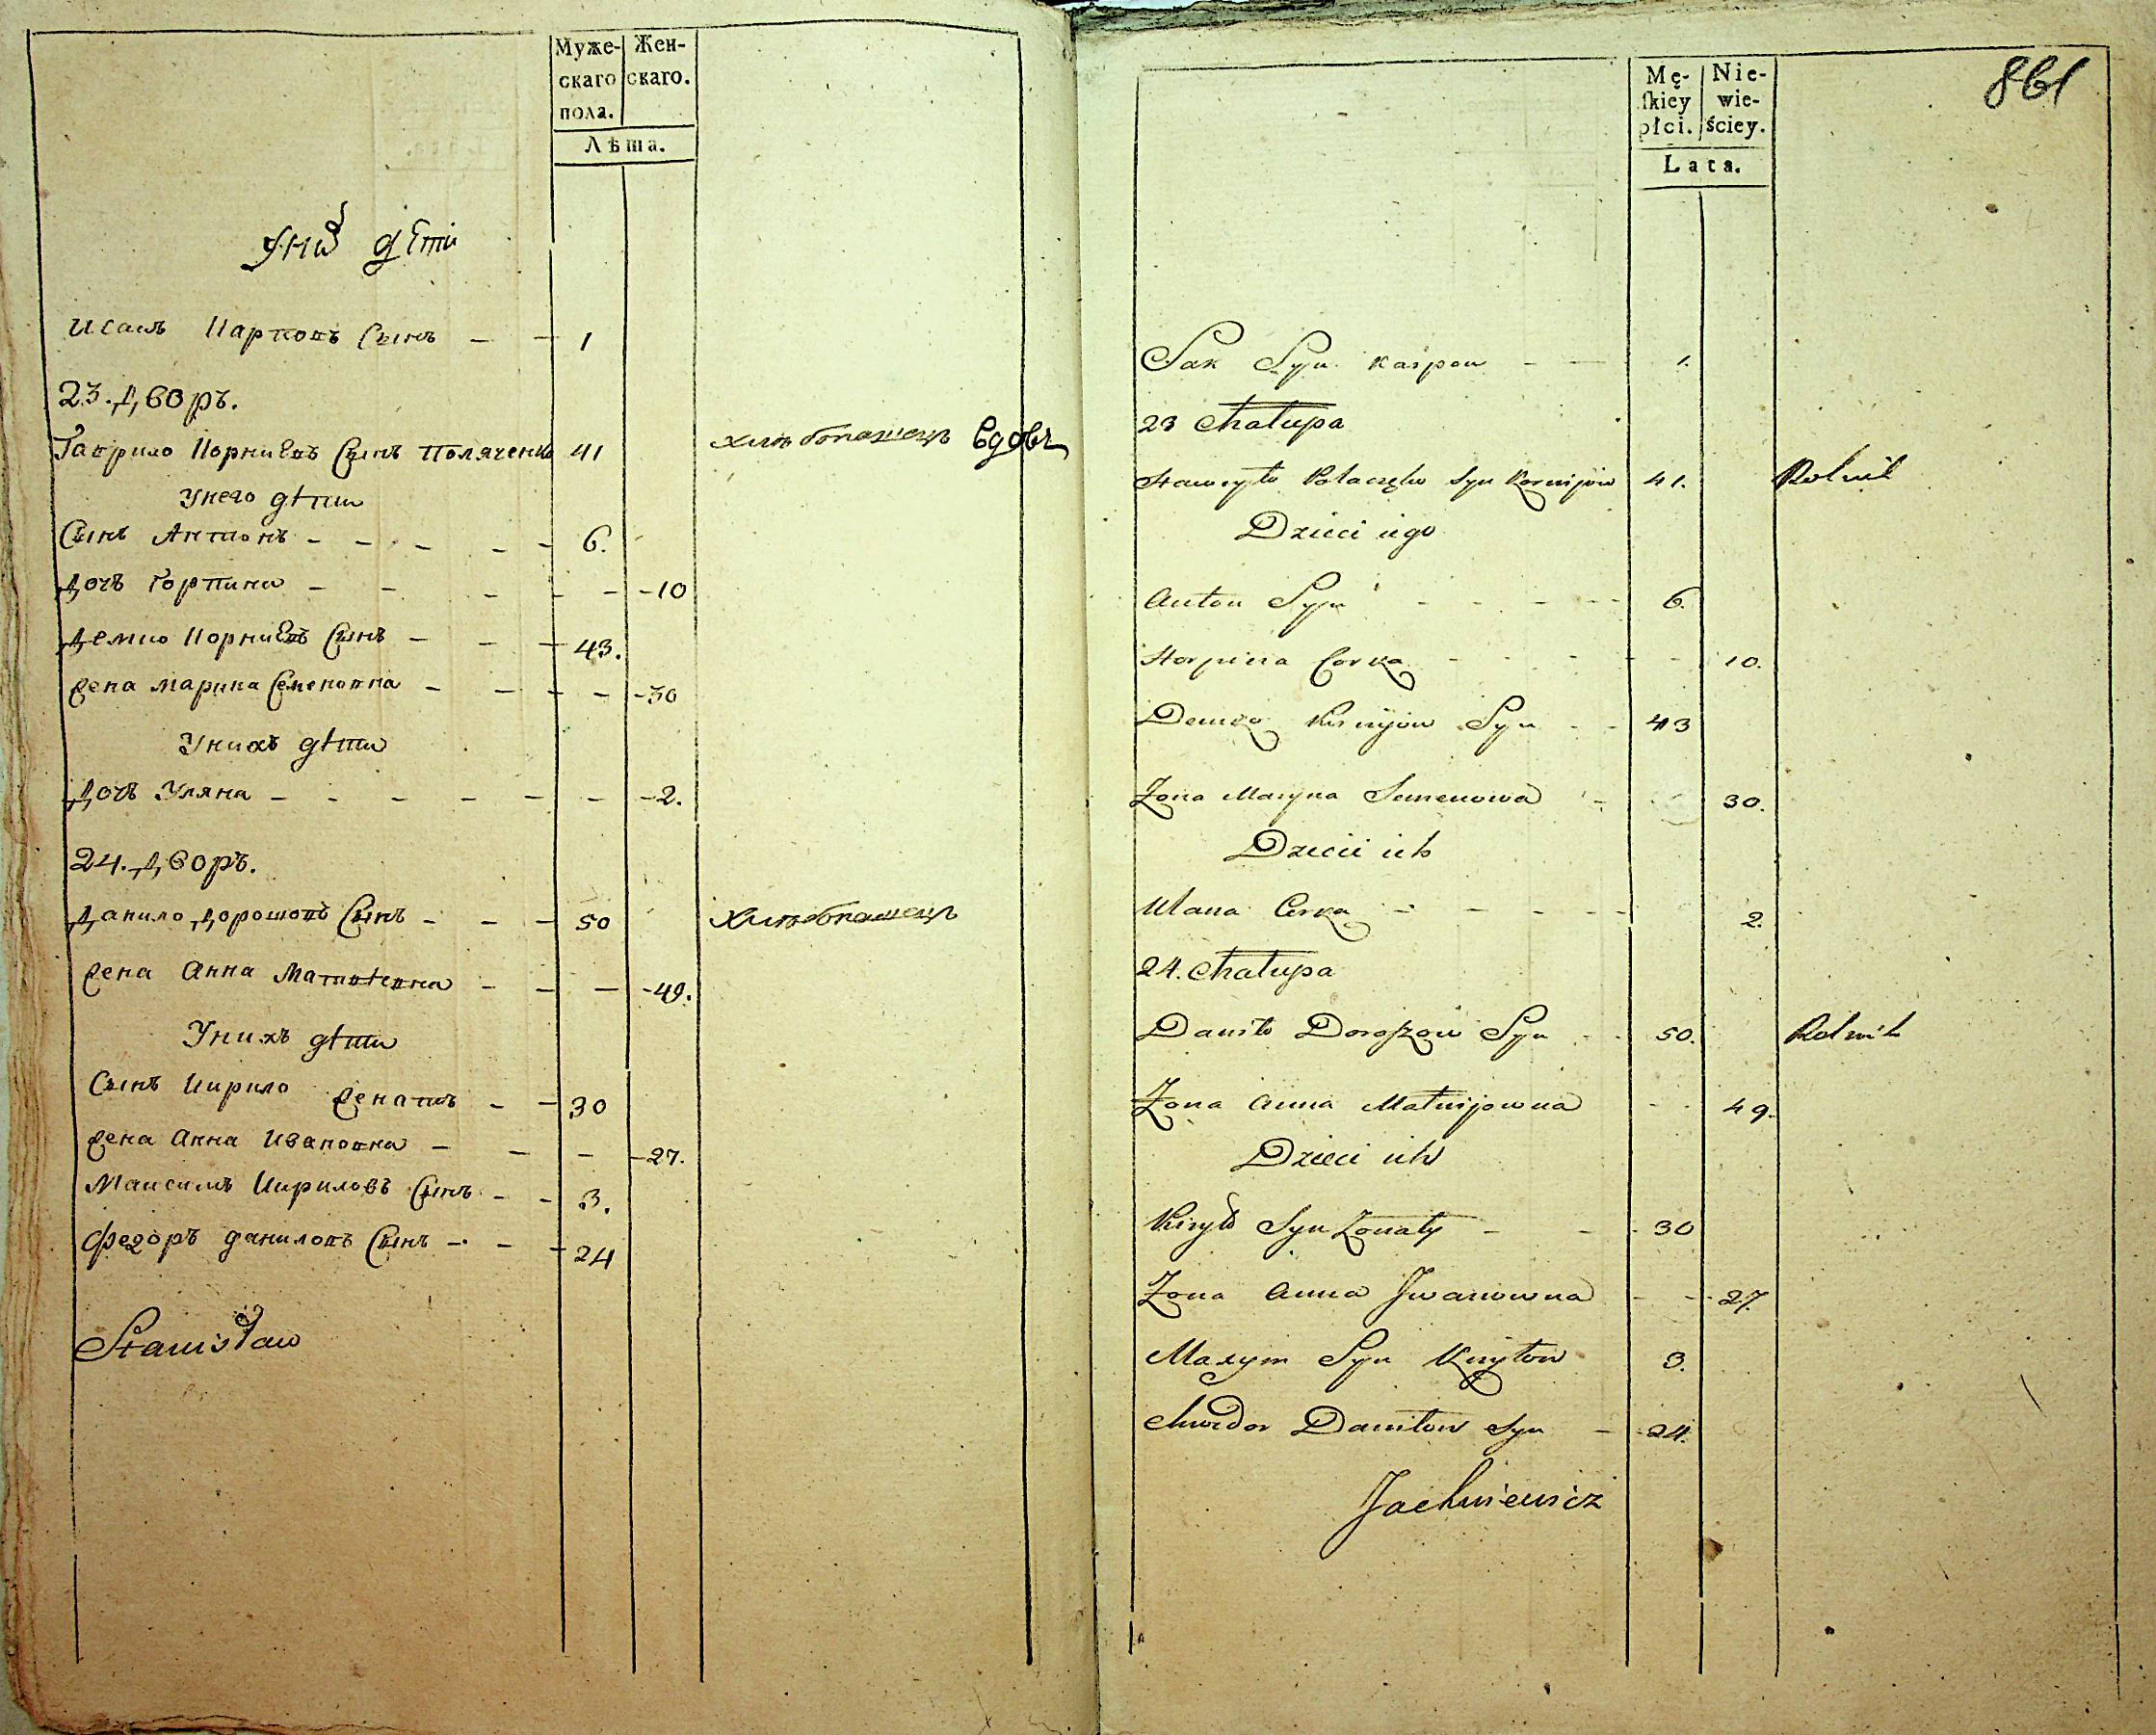 Муже-
скаго
пола.
Жен-
скаго.
Лѣта.
У них дѣти
Исакъ Карповъ Сынъ - - 1
23. Дворъ.
Гаврило Корниевъ Сынъ Поляченко 41 хлебопашецъ вдовъ
У него дѣти
Сынъ Антонъ - - - - - 6.
Дочъ Горпина - - - - - - 10
Демко Корниевъ Сынъ - - - 43.
Жена Марина Семеновна - - - - - 30
У нихъ дѣти
Дочъ Уляна - - - - - - - 2.
24. Дворъ.
Данило Дорошовъ Сынъ - - - 50 Хлебопашецъ
Жена Анна Матвѣевна - - - - 49.
У нихъ дѣти
Сынъ Кирило Женатъ - - 30
Жена Анна Ивановна - - - - 27.
Максимъ Кириловъ Сынъ - - 3.
Федоръ Даниловъ Сынъ - - - 24
Stanisław
Mę-
skiey
płci.
Nie-
wie-
ściey.
Lata.
861
Sak Syn Karpow - - 1.
23 Chałupa
Hawryło Polaczęko Syn Kornijow 41. Rolnik
Dzieci iego
Anton Syn - - - - - 6.
Horpina Corka - - - - - 10.
Demko Kornijow Syn - - 43
Zona Maryna Semenowa - 30.
Dzieci ich
Ulana Corka - - - - - 2.
24. Chałupa
Daniło Doroszow Syn - - 50. Rolnik
Zona Anna Matwijowna - - 49.
Dzieci ich
Kiryło Syn Zonaty - - - 30
Zona Anna Jwanowna - - 27
Maxym Syn Kiryłow 3.
Chwedor Daniłow Syn - - 24.
Jachniewicz